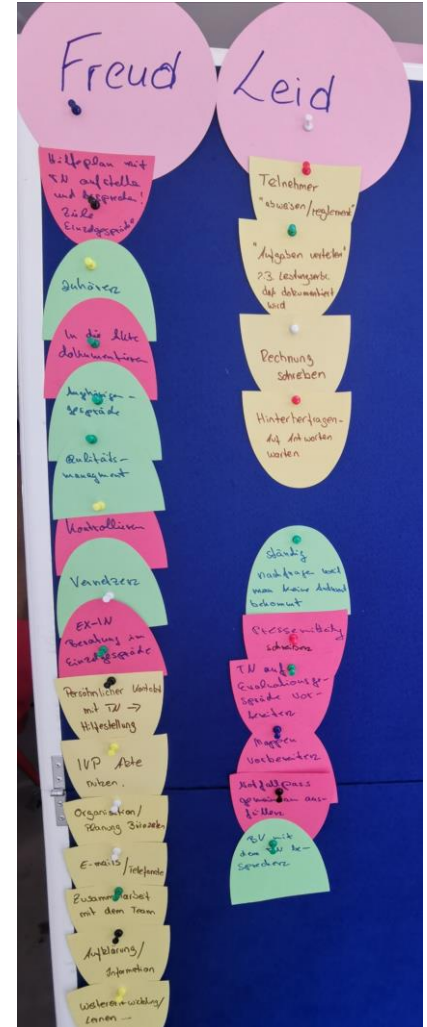 Freud
Hilfeplan mit
TN aufstelle
und besprechen!
Ziele
Einzelgespräch"
Zuhören
In die Akte
dokumentieren
gespräche
Qulitäts-
managment
Kontrollieren
Vernetzen
EX-IN
Beratung im
Einzelgespräche
Persönlicher Kontakt
mit TN →
Hilfestellung
IVP Akte
nutzen.
Organisation/
Planung Büro
E-mails/Telefonate
Zusammenarbeit
mit dem Team
Aufklärung/
Information
Weiterentwicklung/
Lernen
Leid
Teilnehmer
"abweisen/reglement"
"Aufgaben verteilen"
z.B.
das dokumentiert
wird
Rechnung
schreiben
Hinterherfragen-
Auf Antworten
warten
ständig
nachfragen weil
man keine Antwort
bekommt
schreiben
TN auf
Evaluationsge-
spräche vor-
bereiten
Mappen
vorbereiten
Notfallpass
gemeinsam aus-
füllen
BV mit
dem TN be-
sprechen